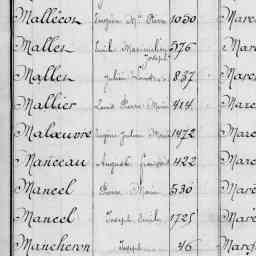 Mallécos Eugène Mie Pierre 1030 Marc
Malles Emile Maximilien Joseph 576 Mar
Malles Julien 837 Mares
Mallier Louis Pierre Marie 414 Marc
Malœuvre Eugène Julien Marie 1472 Marc
Manceau Auguste François 422 Marc
Mancel Pierre Marie 530 Maré
Mancel Joseph Emile 1725 Maré
Mancheron Joseph 46 Març